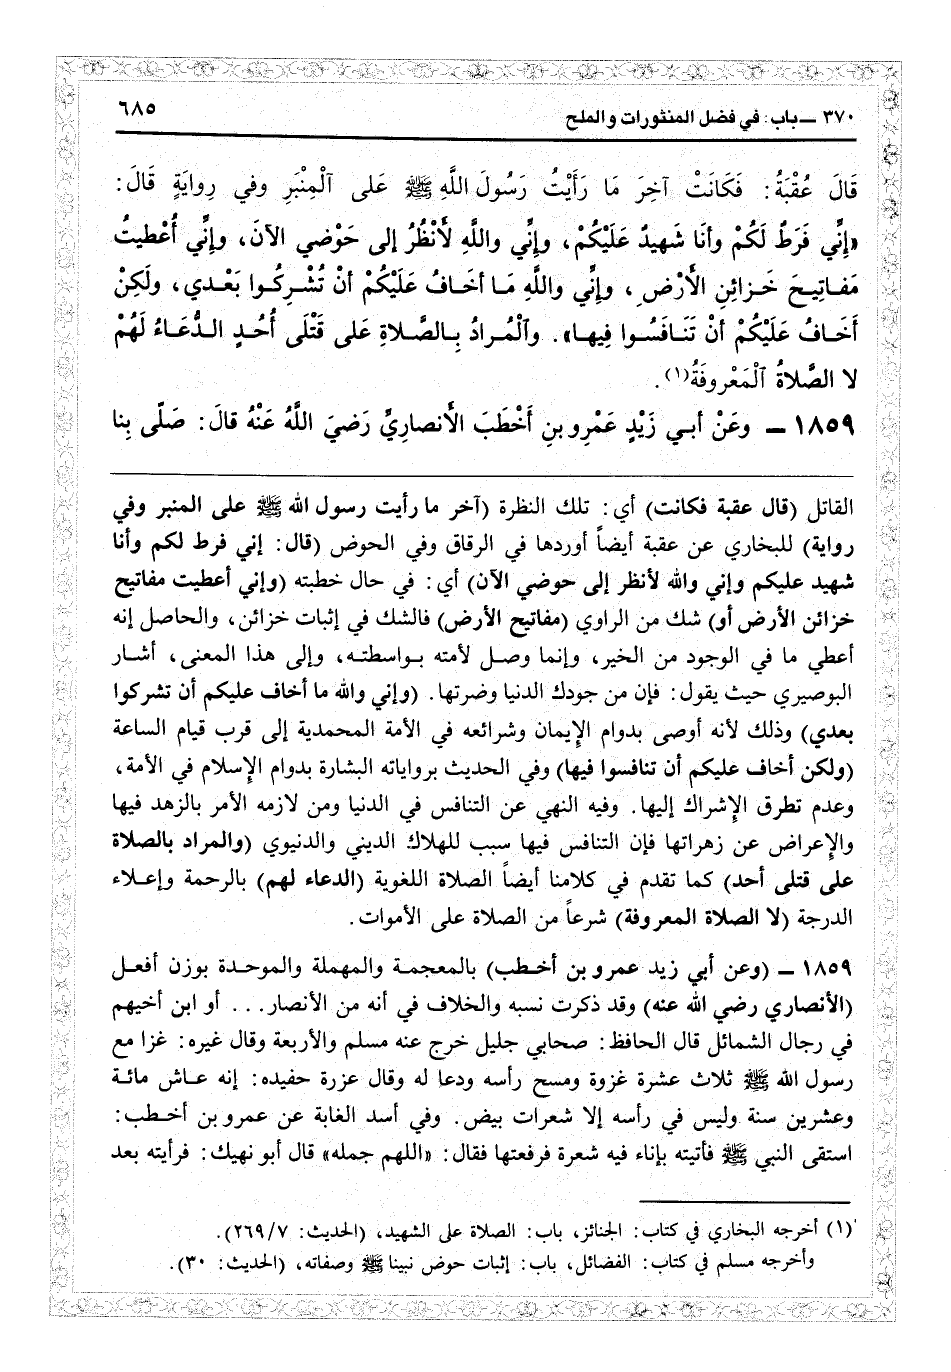 ٣٧٠ ــ باب: في فضل المنثورات والملح
٦٨٥
قَالَ عُقْبَةُ: فَكَانَتْ آخِرَ مَا رَأَيْتُ رَسُولَ اللَّهِ ﷺ عَلى ٱلْمِنْبَرِ وفي رِوايَةٍ قَالَ:
«إنِّي فَرَطٌ لَكُمْ وأنَا شَهيدٌ عَلَيْكُمْ، وإنِّي واللَّهِ لَأَنْظُرُ إلى حَوْضي الآنَ، وإنِّي أُعْطيتُ
مَفـاتِيـحَ خَـزائِنِ الأَرْضِ، وإنِّي واللَّهِ مَـا أخَـافُ عَلَيْكُمْ أنْ تُشْـرِكُـوا بَعْـدي، ولَكِنْ
أخَـافُ عَلَيْكُمْ أنْ تَنَافَسُـوا فِيهـا». وٱلْمُـرادُ بـالصَّـلاةِ عَلى قَتْلَى أُحُـدٍ الـدُّعَـاءُ لَهُمْ
لا الصَّلاةُ ٱلْمَعْروفَةُ(١).
١٨٥٩ ــ وعَنْ أبـي زَيْدٍ عَمْرِو بنِ أَخْطَبَ الأَنصارِيِّ رَضيَ اللَّهُ عَنْهُ قالَ: صَلّى بِنا
القاتل (قال عقبة فكانت) أي: تلك النظرة (آخر ما رأيت رسول الله ﷺ على المنبر وفي
رواية) للبخاري عن عقبة أيضاً أوردها في الرقاق وفي الحوض (قال: إني فرط لكم وأنا
شهيد عليكم وإني والله لأنظر إلى حوضي الآن) أي: في حال خطبته (وإني أعطيت مفاتيح
خزائن الأرض أو) شك من الراوي (مفاتيح الأرض) فالشك في إثبات خزائن، والحاصل إنه
أعطي ما في الوجود من الخير، وإنما وصل لأمته بـواسطتـه، وإلى هذا المعنى، أشار
البوصيري حيث يقول: فإن من جودك الدنيا وضرتها. (وإني والله ما أخاف عليكم أن تشركوا
بعدي) وذلك لأنه أوصى بدوام الإيمان وشرائعه في الأمة المحمدية إلى قرب قيام الساعة
(ولكن أخاف عليكم أن تنافسوا فيها) وفي الحديث برواياته البشارة بدوام الإسلام في الأمة،
وعدم تطرق الإشراك إليها. وفيه النهي عن التنافس في الدنيا ومن لازمه الأمر بالزهد فيها
والإعراض عن زهراتها فإن التنافس فيها سبب للهلاك الديني والدنيوي (والمراد بالصلاة
على قتلى أحد) كما تقدم في كلامنا أيضاً الصلاة اللغوية (الدعاء لهم) بالرحمة وإعـلاء
الدرجة (لا الصلاة المعروفة) شرعاً من الصلاة على الأموات.
١٨٥٩ ــ (وعن أبي زيد عمرو بن أخـطب) بالمعجمة والمهملة والموحدة بوزن أفعـل
(الأنصاري رضي الله عنه) وقد ذكرت نسبه والخلاف في أنه من الأنصار... أو ابن أخيهم
في رجال الشمائل قال الحافظ: صحابي جليل خرج عنه مسلم والأربعة وقال غيره: غزا مع
رسول الله ﷺ ثلاث عشرة غزوة ومسح رأسه ودعا له وقال عزرة حفيده: إنه عـاش مائـة
وعشرين سنة وليس في رأسه إلا شعرات بيض. وفي أسد الغابة عن عمرو بن أخـطب:
استقى النبي ﷺ فأتيته بإناء فيه شعرة فرفعتها فقال: «اللهم جمله» قال أبو نهيك: فرأيته بعد
(١) أخرجه البخاري في كتاب: الجنائز، باب: الصلاة على الشهيد، (الحديث: ٢٦٩/٧).
وأخرجه مسلم في كتاب: الفضائل، باب: إثبات حوض نبينا ﷺ وصفاته، (الحديث: ٣٠).